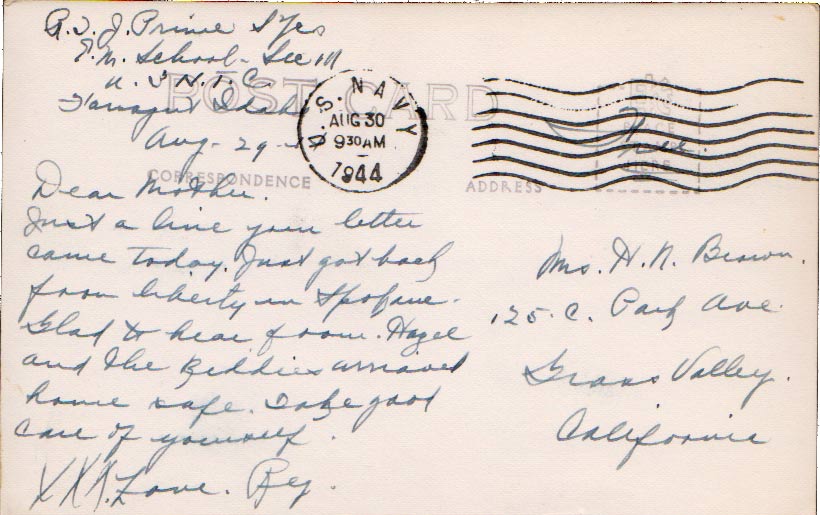 R.J.J. Prime S 1/c
E.M. School - Sec 111
U.S.N.T.C.
Farragut Idaho
Aug - 29 -
POST CARD
U.S. NAVY
AUG 30
9 30 AM
1944
Free.
PLACE
HERE
CORRESPONDENCE
ADDRESS
Dear Mother.
Just a line your letter
came today. Just got back
from liberty in Spokane.
Glad to hear from. Hazel
and the Kiddies arrived
home safe. Take good
care of yourself.
XXX. Love. Reg.
Mrs. H. N. Brown.
125. C. Park Ave.
Grass Valley.
California